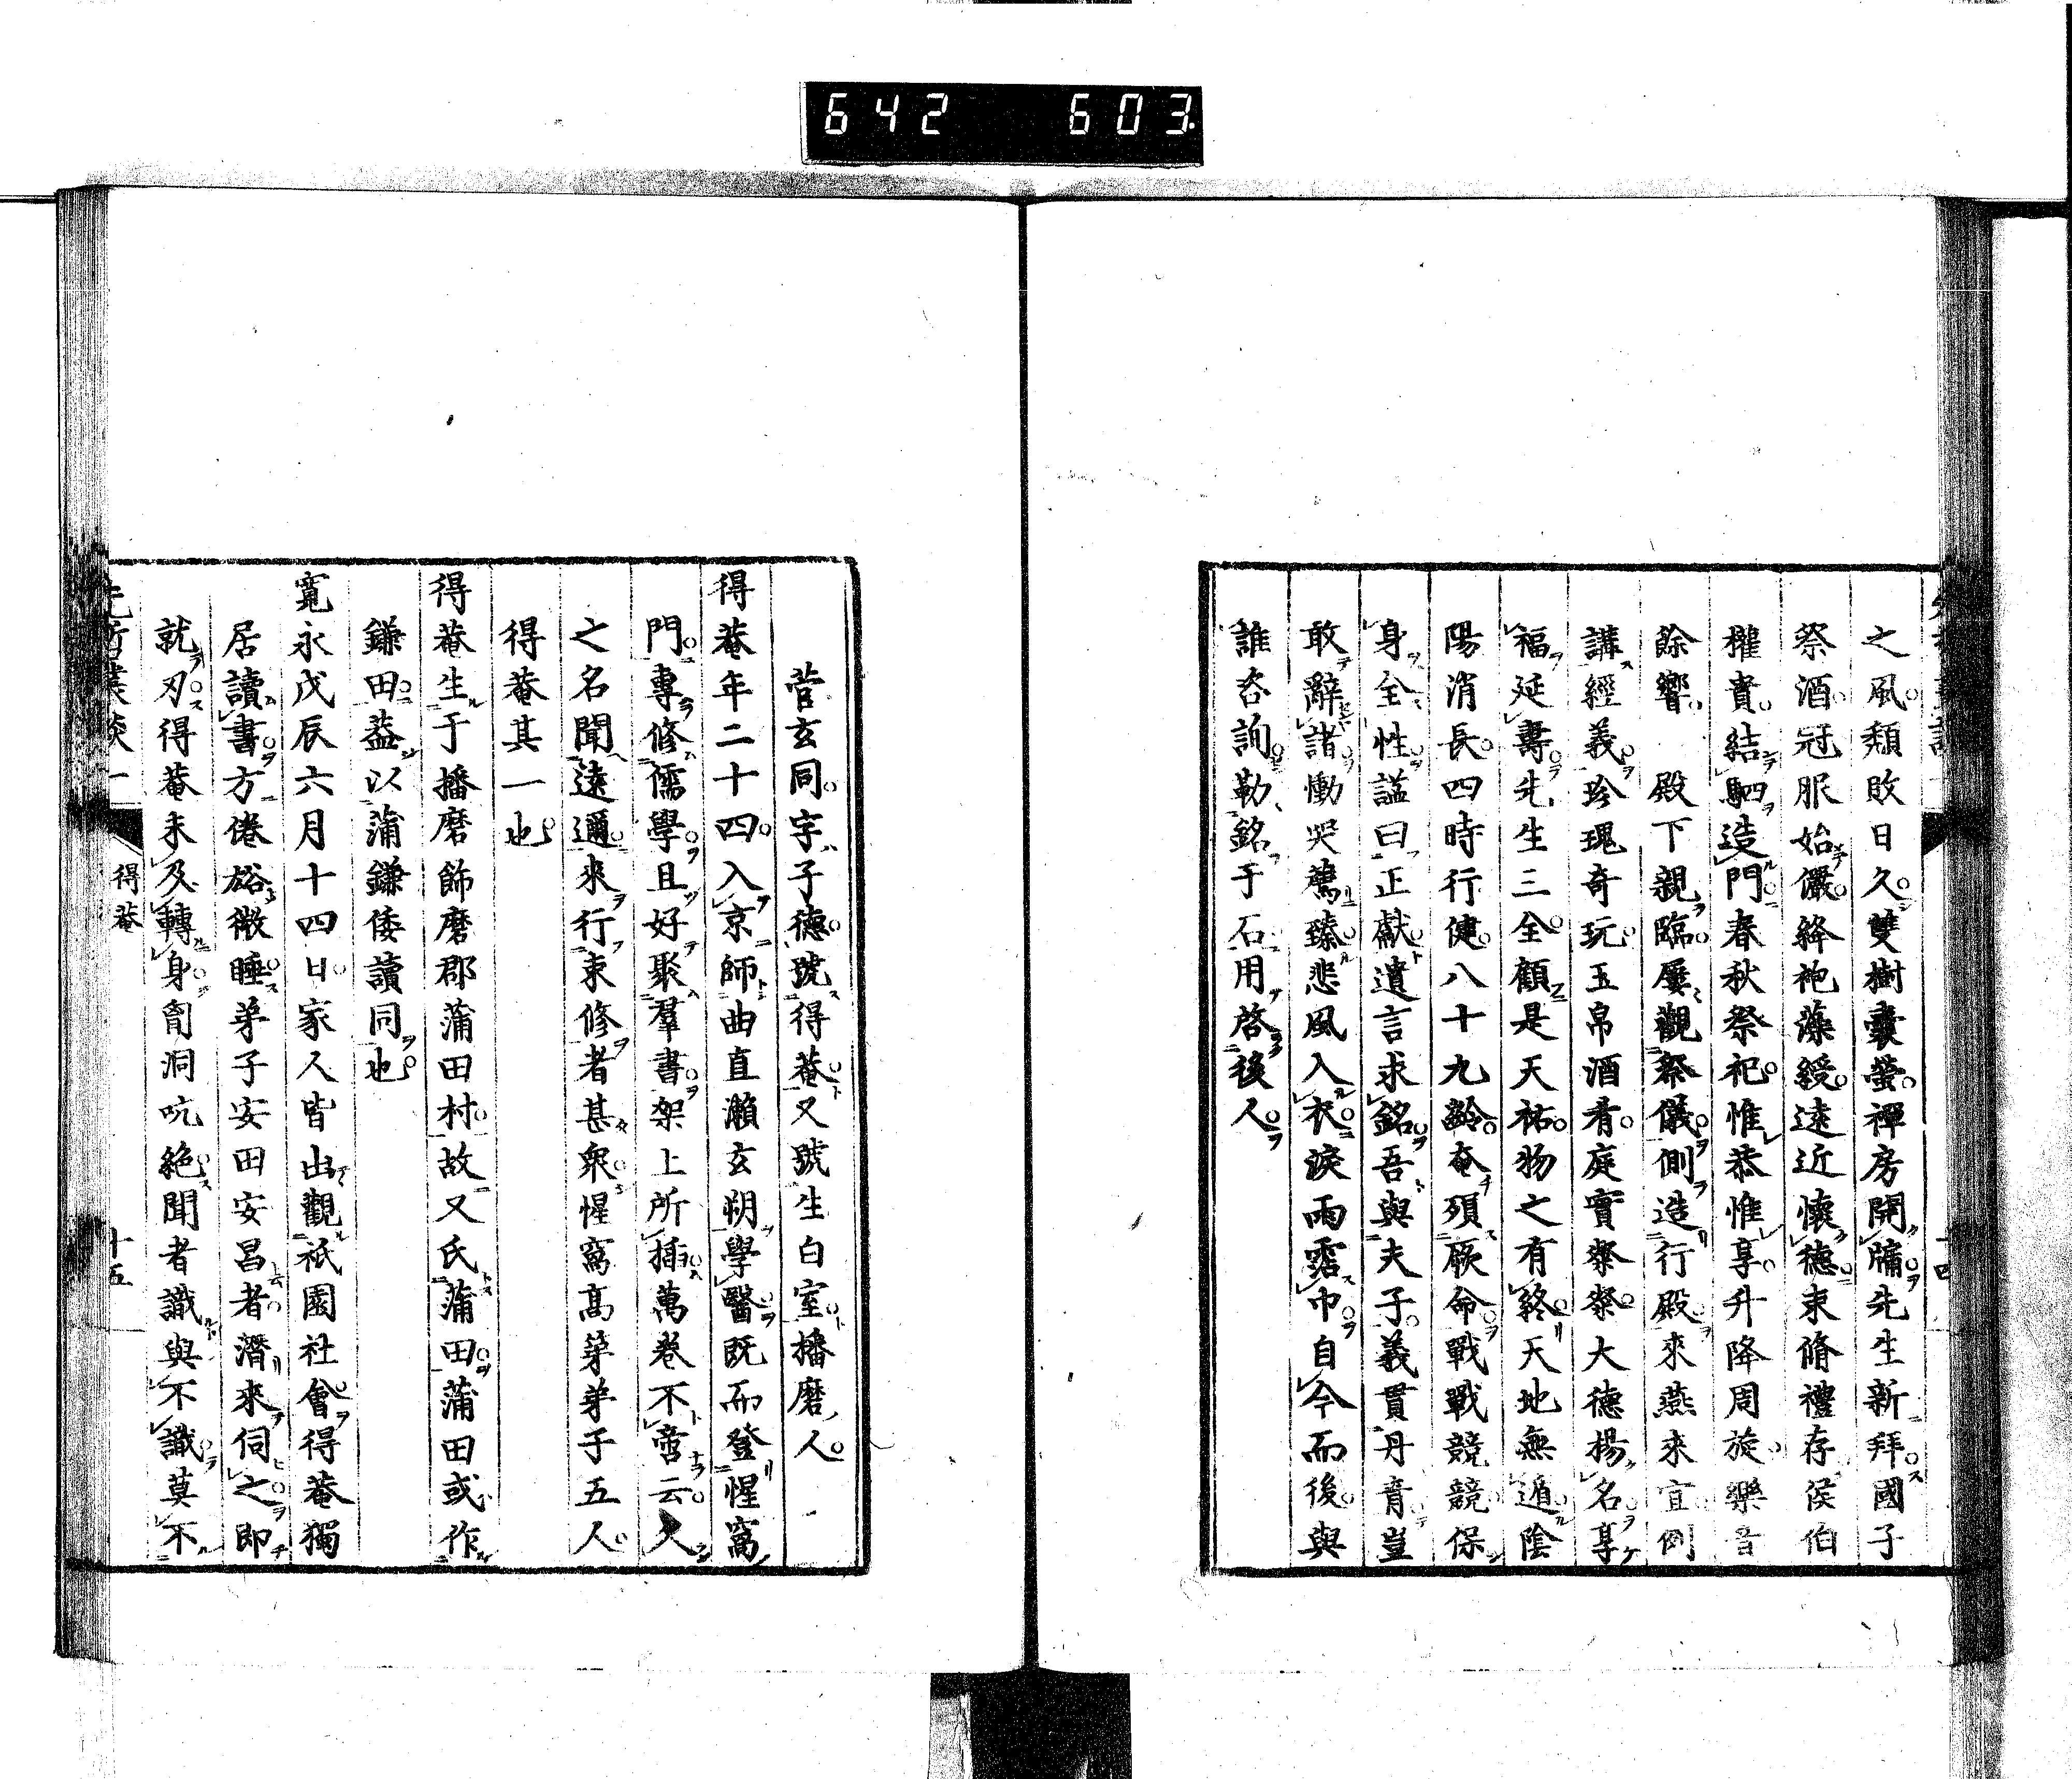 642 603.
之風頽敗日久雙樹囊螢禪房開牖先生新拜國子
祭酒冠服始儼絳袍藻綬遠近懷德束脩禮存侯伯
權貴結駟造門春秋祭祀惟恭惟享升降周旋樂音
餘響　殿下親臨屢觀祭儀側造行殿來燕來宜例
講經義珍瑰奇玩玉帛酒肴庭實粲粲大德揚名享
福延壽先生三全顧是天祐物之有終天地無遁陰
陽消長四時行健八十九齡奄殞厥命戰戰競競保
身全性謚曰正獻遺言求銘吾與夫子義貫丹青豈
敢辭諸慟哭薦臻悲風入衣淚雨霑巾自今而後與
誰咨詢勒銘于石用啓後人
菅玄同字子德號得菴又號生白室播磨人
得菴年二十四入京師曲直瀨玄朔學醫既而登惺窩
門專修儒學且好聚羣書架上所插萬卷不啻云久
之名聞遠邇來行束修者甚衆惺窩高第弟子五人
得菴其一也
得菴生于播磨飾磨郡蒲田村故又氏蒲田蒲田或作
鎌田蓋以蒲鎌倭讀同也
寬永戊辰六月十四日家人皆出觀祇園社會得菴獨
居讀書方倦綌微睡弟子安田安昌者潛來伺之即
就刃得菴未及轉身胷洞吭絶聞者識與不識莫不
先哲叢談 一
得菴
十五